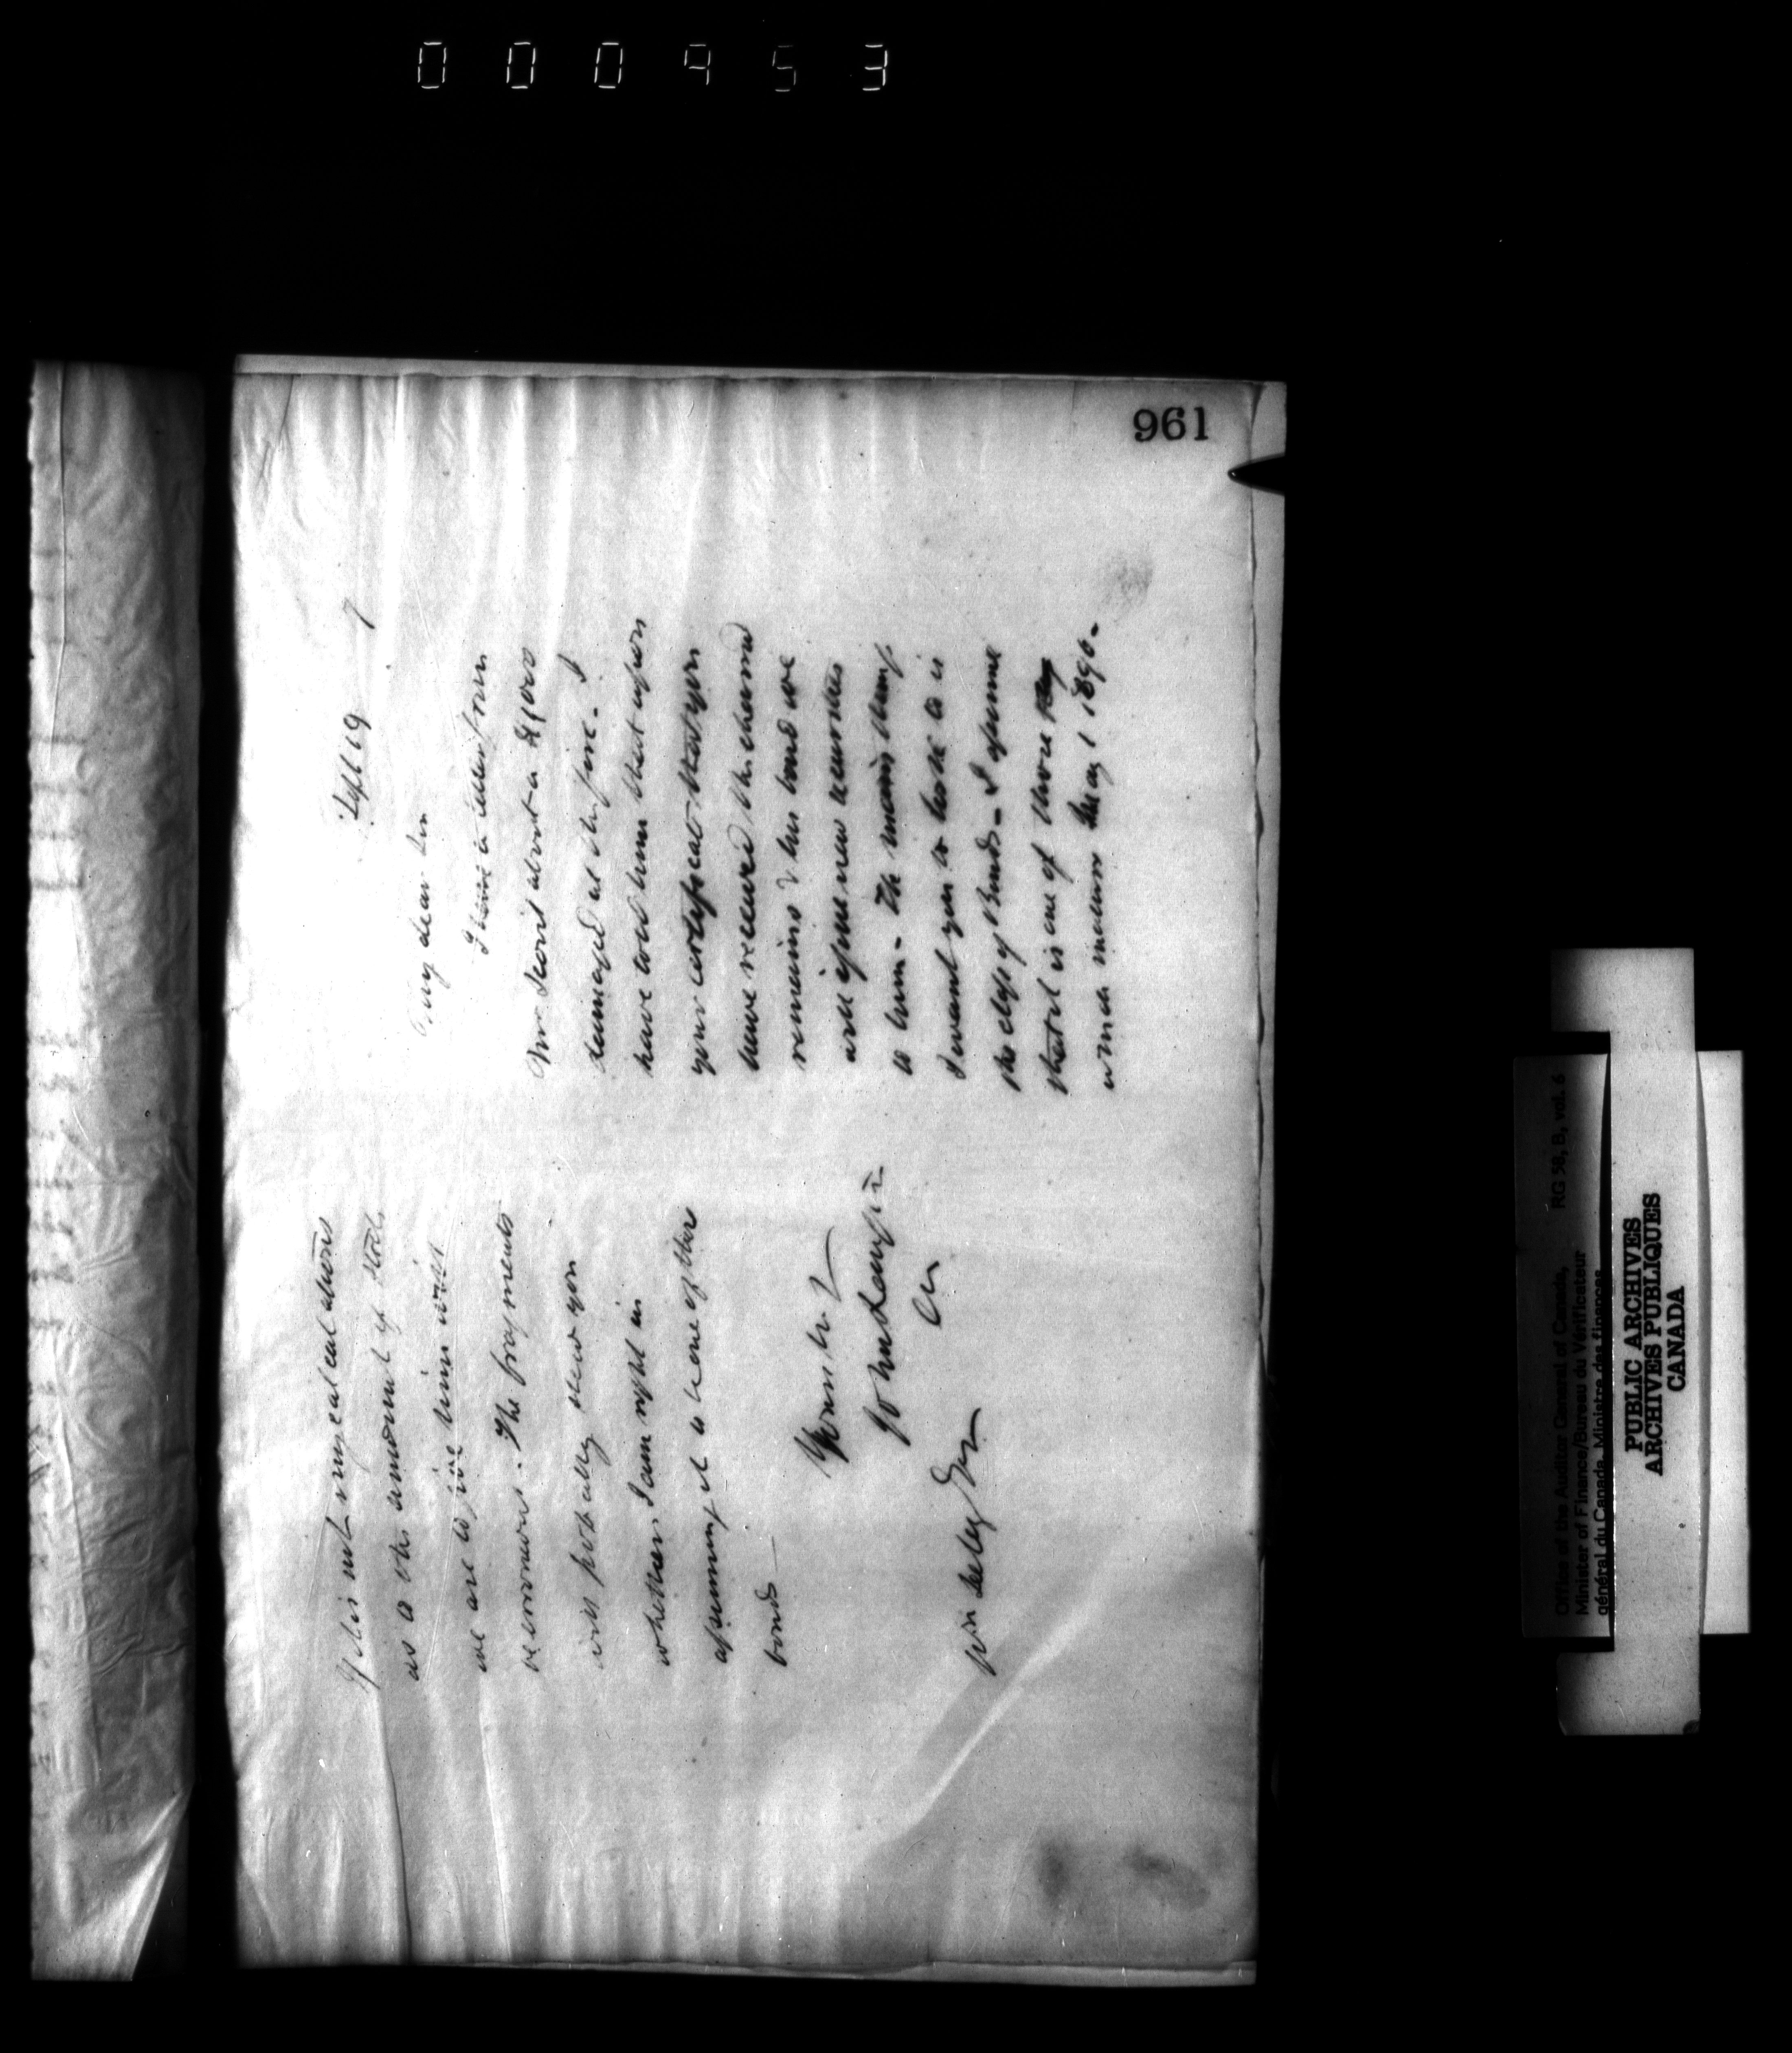 000953
961
Sept 19 7
My dear Sir
I have a letter from
Mr Scovil about a $1000
damaged at the fire. I
have told him that upon
your certificate that you
have received the charred
remains of his bond we
will issue new securities
to him. The main thing
I want you to look to is
the class of Bonds. I assume
that it is one of those
which mature May 1 1890.
If it is not my calculations
as to the amount of stock
we are to give him will
be erroneous. The fragments
will probably shew you
whether I am right in
assuming it to be one of those
bonds
Yours tr
John Langton
Au
PUBLIC ARCHIVES
ARCHIVES PUBLIQUES
CANADA
Office of the Auditor General of Canada, RG 58, B, vol. 6
Minister of Finance/Bureau du Vérificateur
général du Canada, Ministre des finances